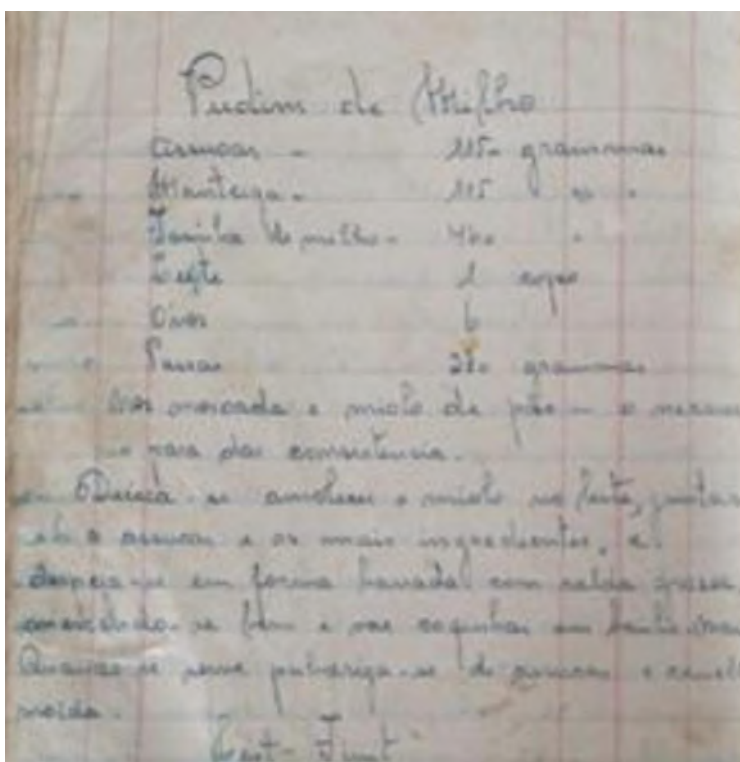 Pudim de Milho
Assucar - 115 grammas
Manteiga - 115 " "
Farinha de milho - "
Leite 1 copo
Ovos 6
Passas grammas
Noz moscada e miolo de pão - o
para dar consistencia.
Deixa-se amolecer o miolo no leite, juntar
o assucar e os mais ingredientes, e
despeja-se em forma barrada com calda grossa
se bem e vae cozinhar em banho
Quando se serve pulveriza-se de assucar e canell
moida.